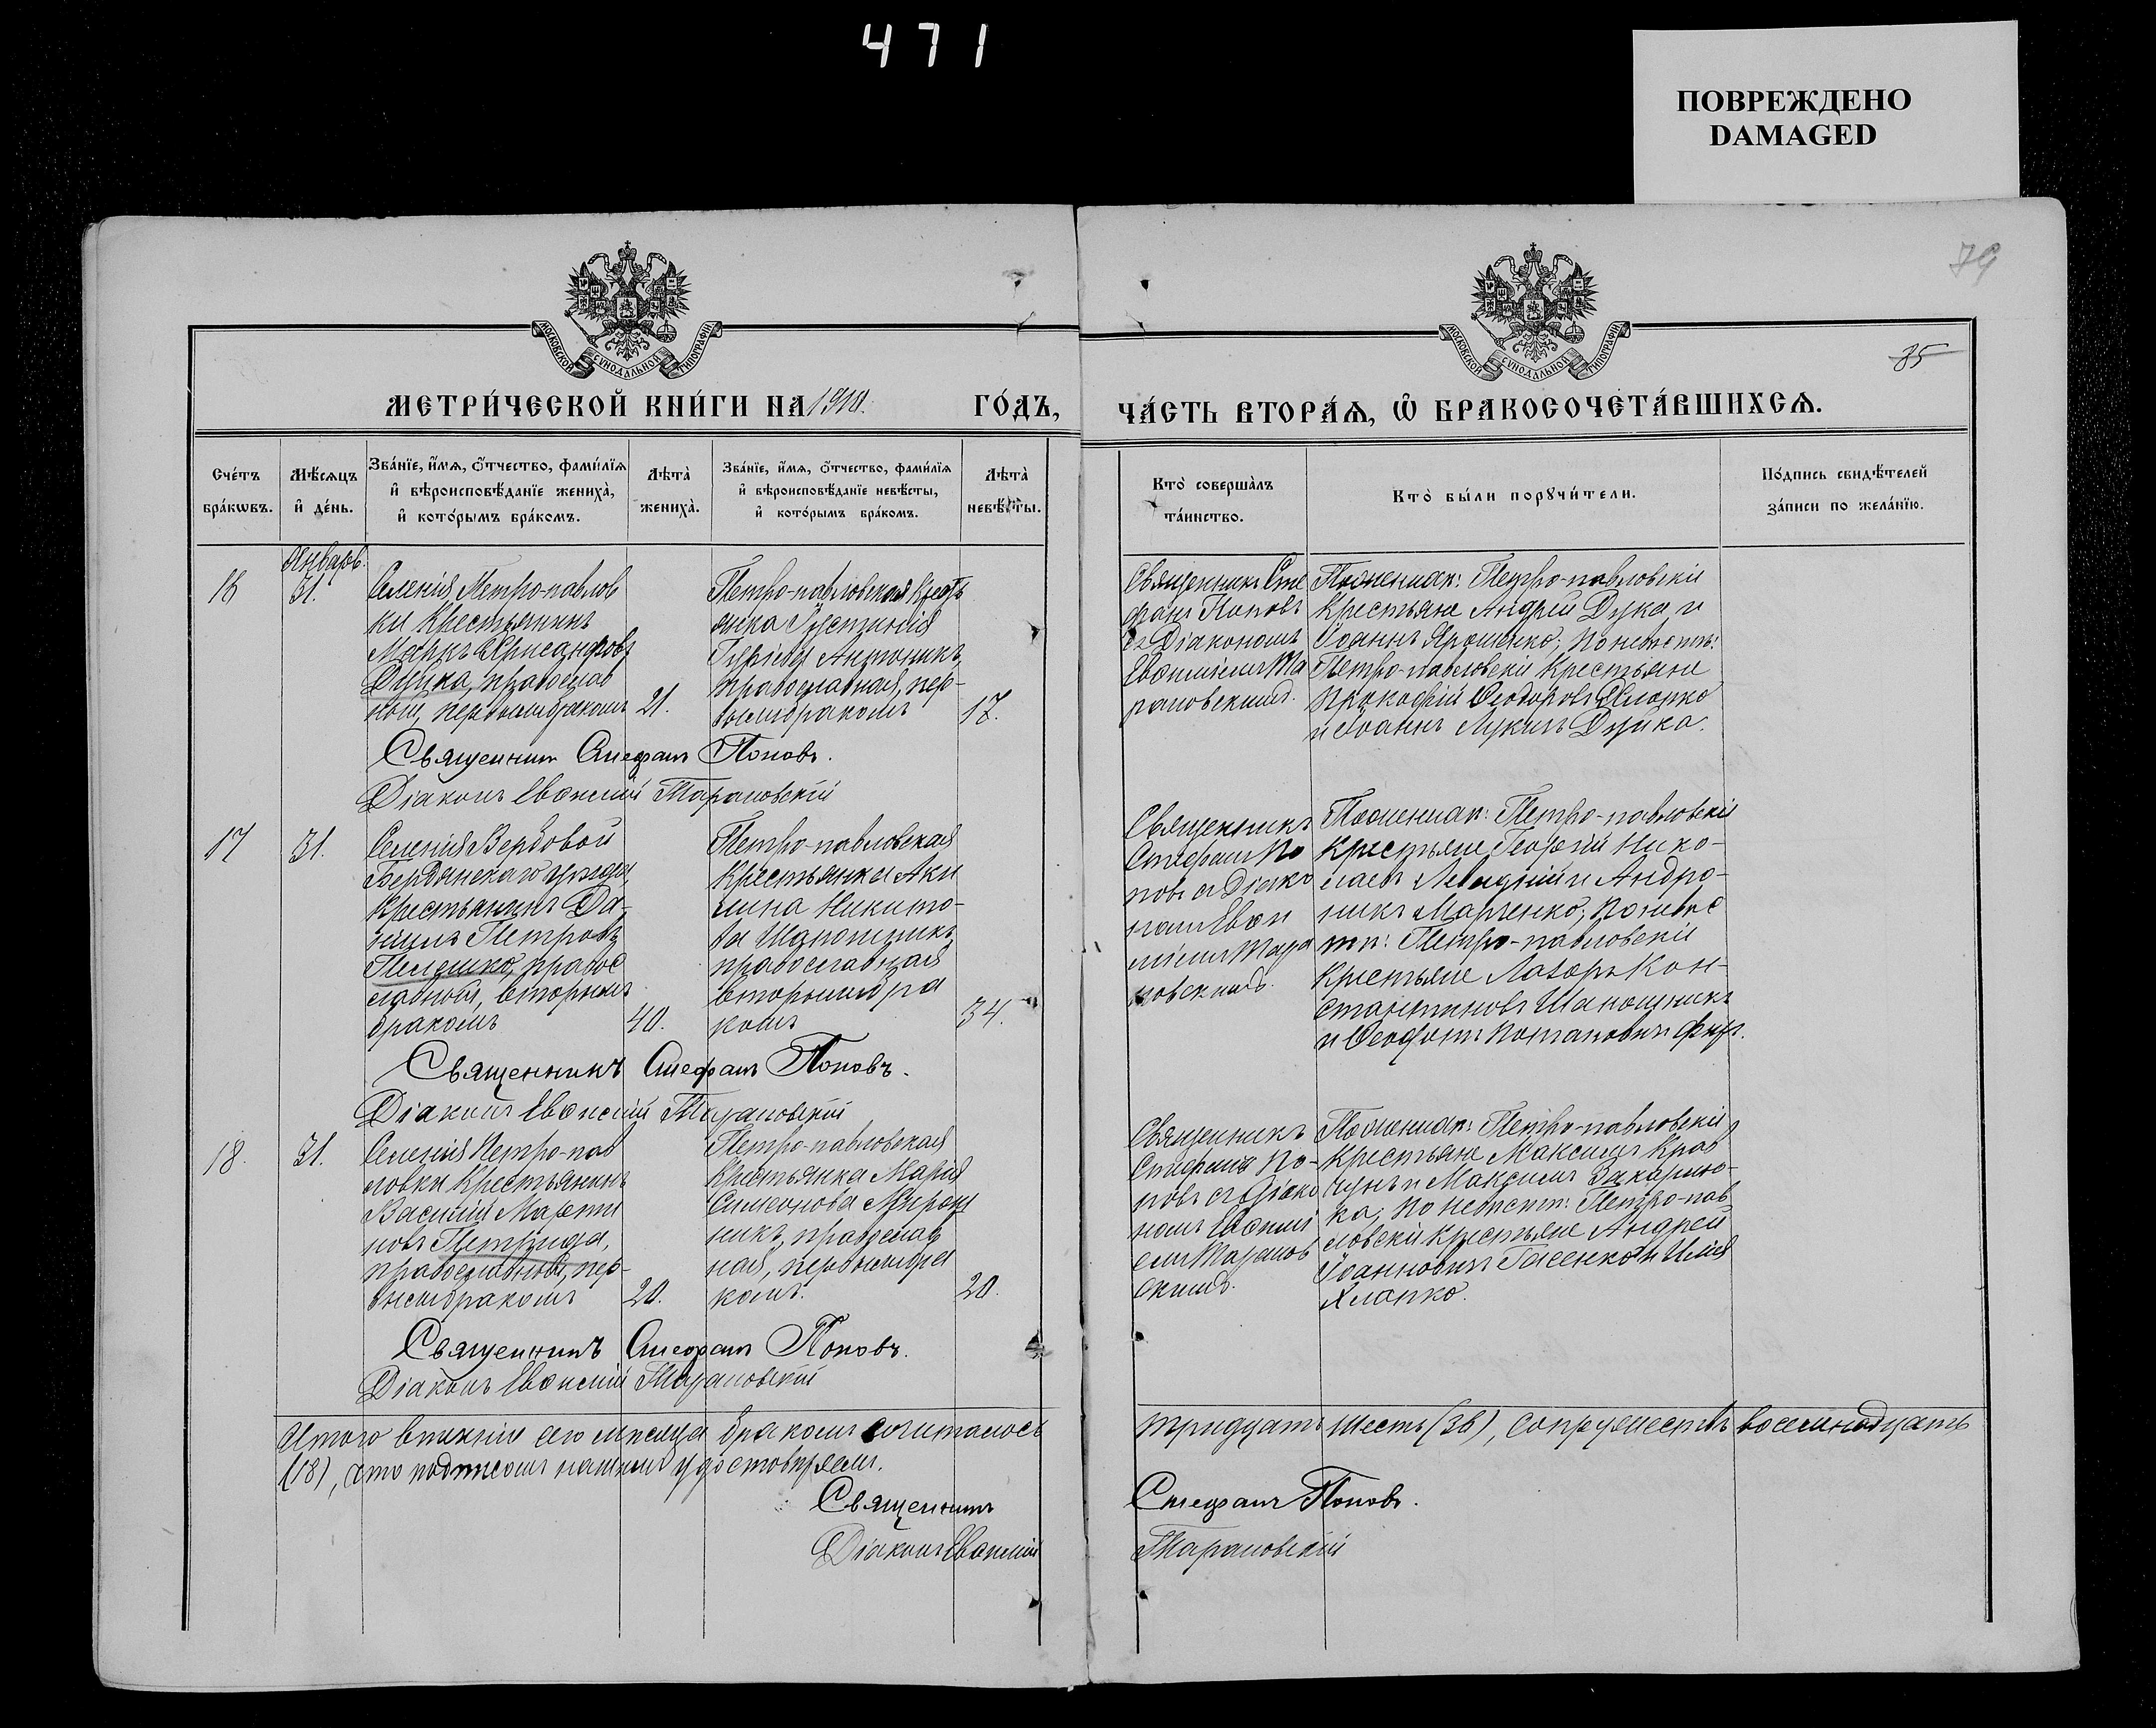 471
ПОВРЕЖДЕНО
DAMAGED
79
35
МОСКОВСКОЙ СѴНОДАЛЬНОЙ ТИПОГРАФІИ
МОСКОВСКОЙ СѴНОДАЛЬНОЙ ТИПОГРАФІИ
МЕТРИ́ЧЕСКОЙ КНИ́ГИ НА 1910. ГО́ДЪ,
ЧА́СТЬ ВТОРА́Ѧ, Ѽ БРАКОСОЧЕТА́ВШИХСѦ.
Сче́тъ
бра́кѡвъ.
Мѣ́сѧцъ
и҆ де́нь.
Зва́нїе, и҆́мѧ, ѻ҆́тчество, фами́лїѧ
и҆ вѣроисповѣ́данїе жениха̀,
и҆ кото́рымъ бра́комъ.
Лѣта̀
жениха̀.
Зва́нїе, и҆́мѧ, ѻ҆́тчество, фами́лїѧ
и҆ вѣроисповѣ́данїе невѣ́сты,
и҆ кото́рымъ бра́комъ.
Лѣта̀
невѣ́сты.
Кто̀ соверша́лъ
та́инство.
Кто̀ бы́ли порꙋчи́тели.
По́дпись свидѣ́телей
за́писи по жела́нїю.
Январь.
16
31.
Селенія Петро-павлов
ки Крестьянинъ
Маркъ
Дуцка, православ
ный, первымъ бракомъ
21.
Петро-павловская Крестъ
янка Іустинія
Андроникъ,
православная, пер-
вымъ бракомъ
17.
Священникъ Сте
фанъ Поповъ
съ Діакономъ
Евѳиміемъ Та
рановскимъ.
По женихѣ: Петро-павловскіе
Крестьяне Андрей Дука и
Іоаннъ Ярошенко; по невѣстѣ:
Петро-павловскіе Крестьяне
Прокофій Ѳеодоровъ
и Іоаннъ Лукинъ Дуцка.
Священникъ Стефанъ Поповъ.
Діаконъ Евѳимій Тарановскій
17
31.
Селенія Вербовой
Бердянскаго уѣзда,
Крестьянинъ Да-
ніилъ Петровъ
правос
лавный, вторымъ
бракомъ
40.
Петро-павловская
Крестьянка Аки
лина Никито-
ва Шапошникъ,
православная
вторымъ бра
комъ
34.
Священникъ
Стефанъ По
повъ съ Діако
номъ Евѳи
міемъ Тара
новскимъ.
По женихѣ: Петро-павловскіе
Крестьяне Георгій Нико-
лаевъ и Андро-
никъ Марченко; по невѣс
тѣ: Петро-павловскіе
Крестьяне Лазарь Кон-
стантиновъ Шапошникъ
и Ѳеофанъ Потаповичъ
Священникъ Стефанъ Поповъ.
Діаконъ Евѳимій Тарановскій
18.
31.
Селенія Петро-пав
ловки Крестьянинъ
Василій Марти
новъ Петрига,
православный, пер-
вымъ бракомъ
20.
Петро-павловская
Крестьянка Марія
Симеонова Мирош
никъ, православ
ная, первымъ бра
комъ.
20.
Священникъ
Стефанъ По-
повъ съ Діако
номъ Евѳимі
емъ Таранов
скимъ.
По женихѣ: Петро-павловскіе
Крестьяне Максимъ Крав
чунъ и Максимъ Захарию-
ка, по невѣстѣ: Петро-пав
ловскіе Крестьяне Андрей
Іоанновичъ Гасенко и Илія
Хлапко.
Священникъ Стефанъ Поповъ.
Діаконъ Евѳимій Тарановскій
Итого втеченіи сего мѣсяца бракомъ сочиталось тридцать шесть (36), супружествъ восемнадцать
(18), что подписомъ нашимъ удостовѣряемъ.
Священникъ Стефанъ Поповъ.
Діаконъ Евѳимій Тарановскій